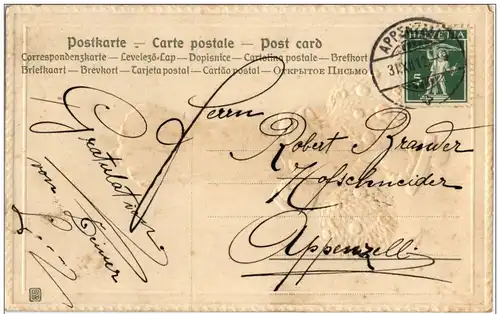 Postkarte – Carte postale – Post card
Correspondenzkarte – Levelező-Lap – Dopisnice – Cartolina postale – Brefkort
Briefkaart – Brévkort – Tarjeta postal – Cartão postal – ОТКРЫТОЕ ПИСЬМО
APPENZELL
HELVETIA
5
Herrn
Robert Brander
Hofschneider
Appenzell
Gratulation
von